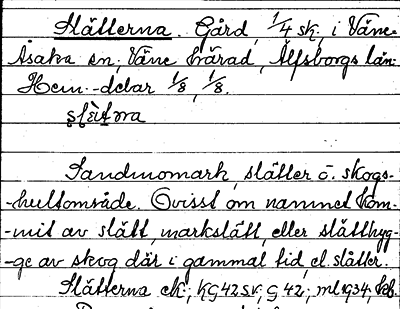 Slätterna. Gård, 1/4 sk. i Väne-
Åsaka sn, Väne härad, Älfsborgs län.
Hem.-delar 1/8, 1/8.
Sandmomark, slätter o. skogs-
-hultområde. Ovisst om namnet kom-
-mit av slätt, markslätt, eller slätthyg-
-ge av skog där i gammal tid, el. slåtter.
Slätterna ek; KG42SV; G 42; ml 1934,